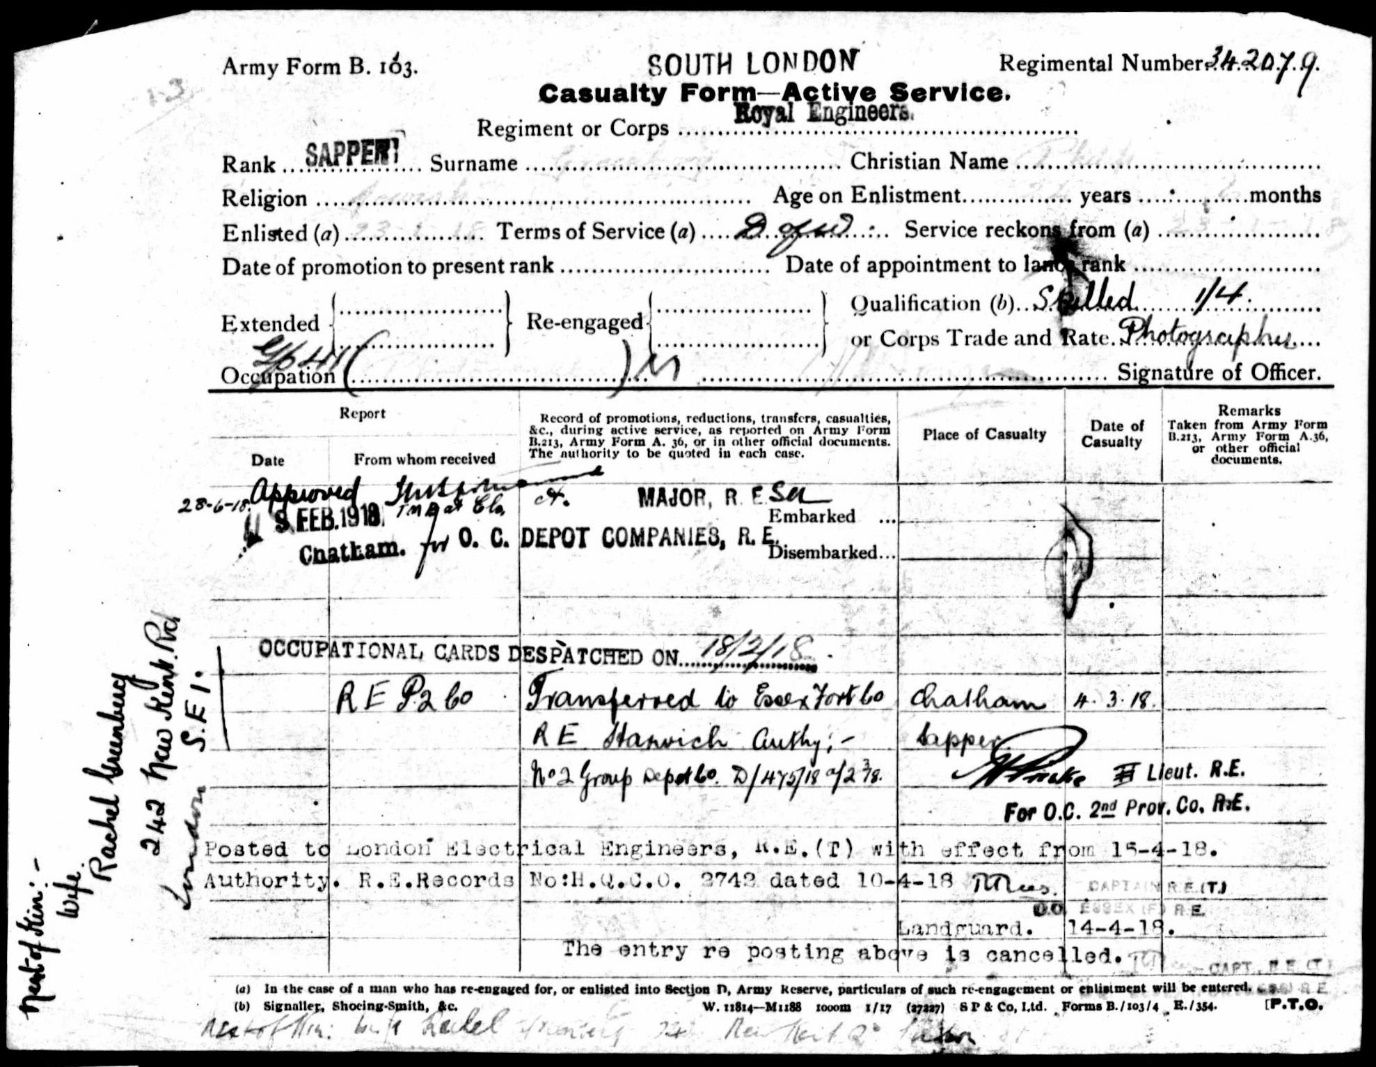 Army Form B. 103.
SOUTH LONDON
Regimental Number 342079.
Casualty Form—Active Service.
Regiment or Corps Royal Engineers.
Rank SAPPER Surname Christian Name
Religion Age on Enlistment years months
Enlisted (a) 23-1-18 Terms of Service (a) D of W Service reckons from (a) 23-1-18
Date of promotion to present rank Date of appointment to lance rank
Extended Re-engaged Qualification (b) Skilled 1/4.
or Corps Trade and Rate. Photographer
Occupation Signature of Officer.
Report
Date
From whom received
Record of promotions, reductions, transfers, casualties,
&c., during active service, as reported on Army Form
B.213, Army Form A. 36, or in other official documents.
The authority to be quoted in each case.
Place of Casualty
Date of
Casualty
Remarks
Taken from Army Form
B.213, Army Form A.36,
or other official
documents.
28-6-18 Approved
MAJOR, R.E.
FEB. 1918
Chatham. for O. C. DEPOT COMPANIES, R.E.
Embarked ...
Disembarked...
OCCUPATIONAL CARDS DESPATCHED ON 18/2/18.
R E P2 Co Transferred to Essex Fort Co Chatham 4.3.18.
R E Harwich Authy:- Sapper
No 2 Group Depot Co. D/475/18 Lieut. R.E.
For O.C. 2nd Prov. Co. R.E.
Posted to London Electrical Engineers, R.E.(T) with effect from 15-4-18.
Authority. R.E.Records No:H.Q.C.O. 2742 dated 10-4-18 CAPTAIN R.E.(T.)
O.C. ESSEX (F) R.E.
Landguard. 14-4-18.
The entry re posting above is cancelled. CAPT. R.E.(T.)
(a) In the case of a man who has re-engaged for, or enlisted into Section D, Army Reserve, particulars of such re-engagement or enlistment will be entered.
(b) Signaller, Shoeing-Smith, &c. W. 11814—M1188 1000m 1/17 (27227) S P & Co, Ltd. Forms B./103/4 E./354. [P.T.O.
Next of Kin: Wife Rachel New Kent Rd
Next of Kin:-
Wife.
Rachel Greenberg
242 New Kent Rd
London S.E 1.